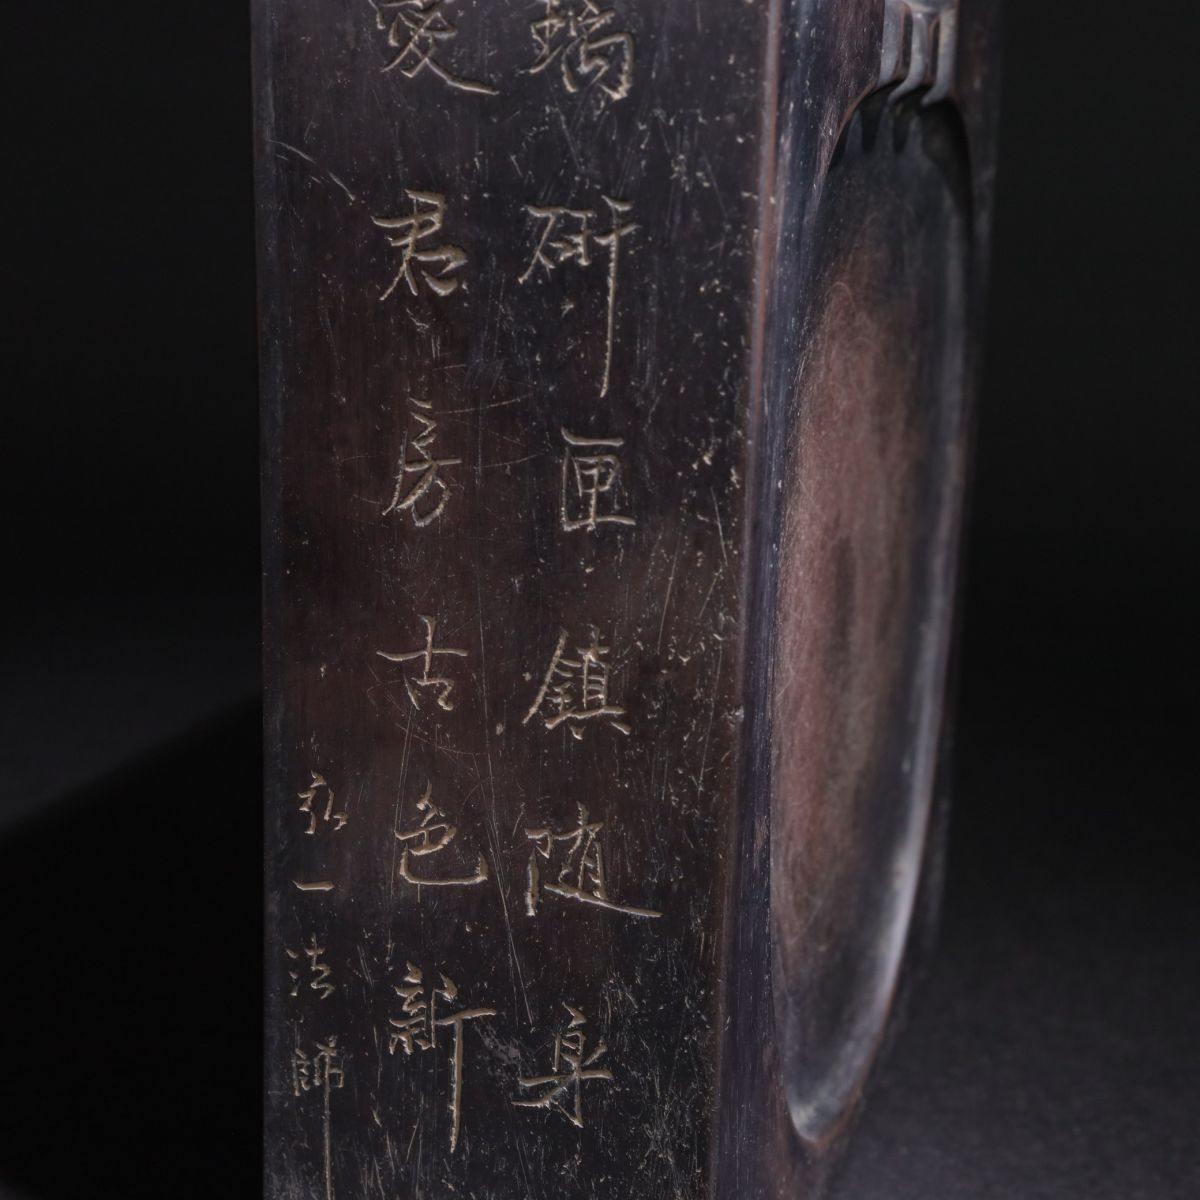 璃研匣鎮随身
愛君房古色新
永一法師